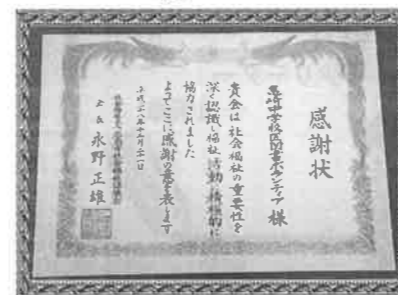 感謝状
亀崎中学校区図書ボランティア 様
貴会は社会福祉の重要性を
深く認識し福祉活動に積極的に
協力されました
よってここに感謝の意を表します
平成二八年十二月二一日
会長 永野 正雄